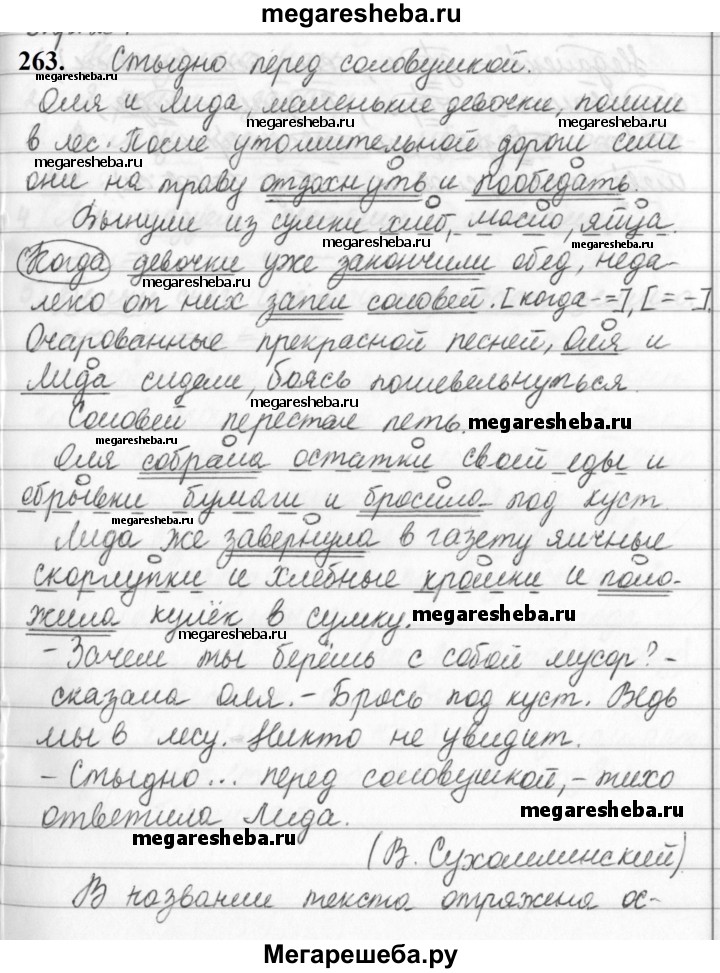 megaresheba.ru
263. Стыдно перед соловушкой.
megaresheba.ru
Оля и Лида, маленькие девочки, пошли
megaresheba.ru megaresheba.ru
в лес. После утомительной дороги сели
megaresheba.ru
они на траву отдохнуть и пообедать.
Вынули из сумки хлеб, масло, яйца.
megaresheba.ru
Когда девочки уже закончили обед, неда-
леко от них запел соловей. [когда -=], [= -].
megaresheba.ru
Очарованные прекрасной песней, Оля и
Лида сидели, боясь пошевельнуться.
Соловей перестал петь.
megaresheba.ru
megaresheba.ru
Оля собрала остатки своей еды и
обрывки бумаги и бросила под куст.
megaresheba.ru
Лида же завернула в газету яичные
скорлупки и хлебные крошки и поло-
жила кулёк в сумку.
megaresheba.ru
megaresheba.ru
- Зачем ты берёшь с собой мусор? -
сказала Оля. - Брось под куст. Ведь
мы в лесу. Никто не увидит.
- Стыдно... перед соловушкой, - тихо
ответила Лида.
megaresheba.ru
megaresheba.ru
(В. Сухомлинский)
В названии текста отражена ос-
Мегарешеба.ру